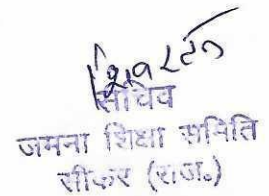 सचिव
जमना शिक्षा समिति
सीकर (राज.)